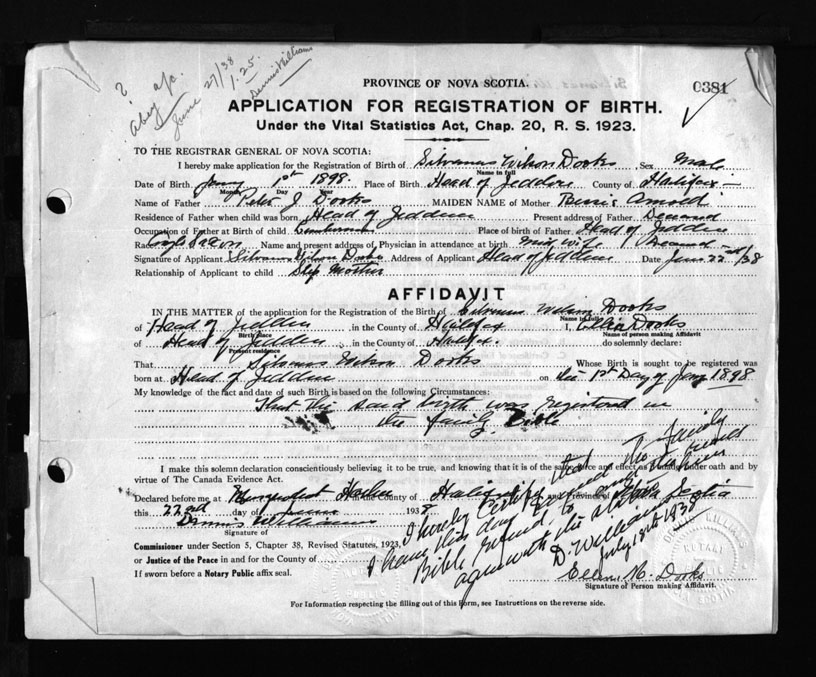 June 27/38
1.25
Dennis Williams
PROVINCE OF NOVA SCOTIA.
0381
APPLICATION FOR REGISTRATION OF BIRTH.
Under the Vital Statistics Act, Chap. 20, R. S. 1923.
TO THE REGISTRAR GENERAL OF NOVA SCOTIA:
I hereby make application for the Registration of Birth of Silvanus Wilson Dooks Sex Male
Name in full
Date of Birth Jany 1st 1898. Place of Birth Head of Jeddore County of Halifax
Month Day Year
Name of Father Peter J Dooks MAIDEN NAME of Mother Arnold
Residence of Father when child was born Head of Jeddore Present address of Father Deceased
Occupation of Father at Birth of child Place of birth of Father Head of Jeddore
Race Anglo Saxon Name and present address of Physician in attendance at birth Midwife Deceased
Signature of Applicant Silvanus Wilson Dooks Address of Applicant Head of Jeddore Date June 22nd/38
Relationship of Applicant to child Step Mother
AFFIDAVIT
IN THE MATTER of the application for the Registration of the Birth of Silvanus Wilson Dooks
Name in full
of Head of Jeddore in the County of Halifax I, Ellen Dooks
Birth place Name of person making Affidavit
of Head of Jeddore in the County of Halifax. do solemnly declare:
Present residence
That Silvanus Wilson Dooks Whose Birth is sought to be registered was
born at Head of Jeddore on the 1st Day of Jany 1898
My knowledge of the fact and date of such Birth is based on the following Circumstances:
That the said birth was registered in
the family Bible
I make this solemn declaration conscientiously believing it to be true, and knowing that it is of the same force and effect as if made under oath and by
virtue of The Canada Evidence Act.
Declared before me at Musquodoboit Harbor in the County of Halifax and Province of Nova Scotia
this 22nd day of June 1938
Dennis Williams
Signature of
I hereby certify that
I have this day examined the family
Bible record, to
agree with the above
D. Williams
July 18th 1938
Commissioner under Section 5, Chapter 38, Revised Statutes, 1923,
or Justice of the Peace in and for the County of
If sworn before a Notary Public affix seal.
Ellen M. Dooks
Signature of Person making Affidavit.
DENNIS WILLIAMS
NOTARY
For Information respecting the filling out of this Form, see Instructions on the reverse side.